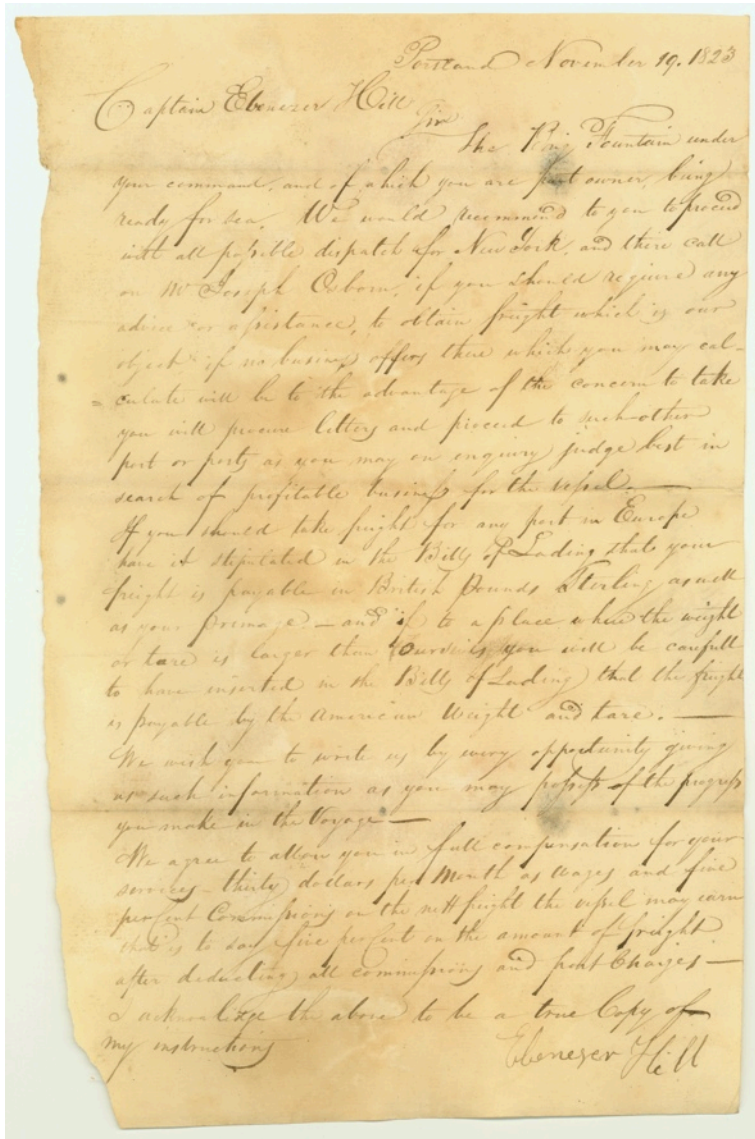 Portland November 19. 1823
Captain Ebenezer Hill
Sir
The Brig Fountain under
your command, and of which you are part owner, being
ready for sea, We would recommend to you to proceed
with all possible dispatch for New York, and there call
on Mr Joseph Osborn, if you should require any
advice or assistance, to obtain freight which is our
object if no business offers there which you may cal-
= culate will be to the advantage of the concern to take
you will procure letters and proceed to such other
port or ports as you may on enquiry judge best in
search of profitable business for the vessel. —
If you should take freight for any port in Europe
have it stipulated in the Bills of Lading that your
freight is payable in British Pounds Sterling as well
as your Primage — and if to a place where the weight
or tare is larger than ours you will be carefull
to have inserted in the Bills of Lading that the freight
is payable by the American Weight and tare. —
We wish you to write us by every opportunity giving
us such information as you may possess of the progress
you make in the Voyage —
We agree to allow you in full compensation for your
services - thirty dollars per Month as wages and five
per Cent Commissions on the nett freight the vessel may earn
that is to say five per Cent on the amount of freight
after deducting all commissions and port Charges —
I acknowlege the above to be a true Copy of
my instructions
Ebenezer Hill